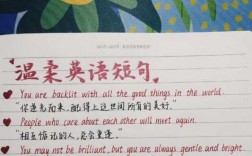 温柔英语短句
You are backlit with all the good things in the world.
"你逆光而来，配得上这世间所有的美好。"
People who care about each other will meet again.
"相互惦记的人，总会重逢。"
You may not be brilliant, but you are always gentle and bright.